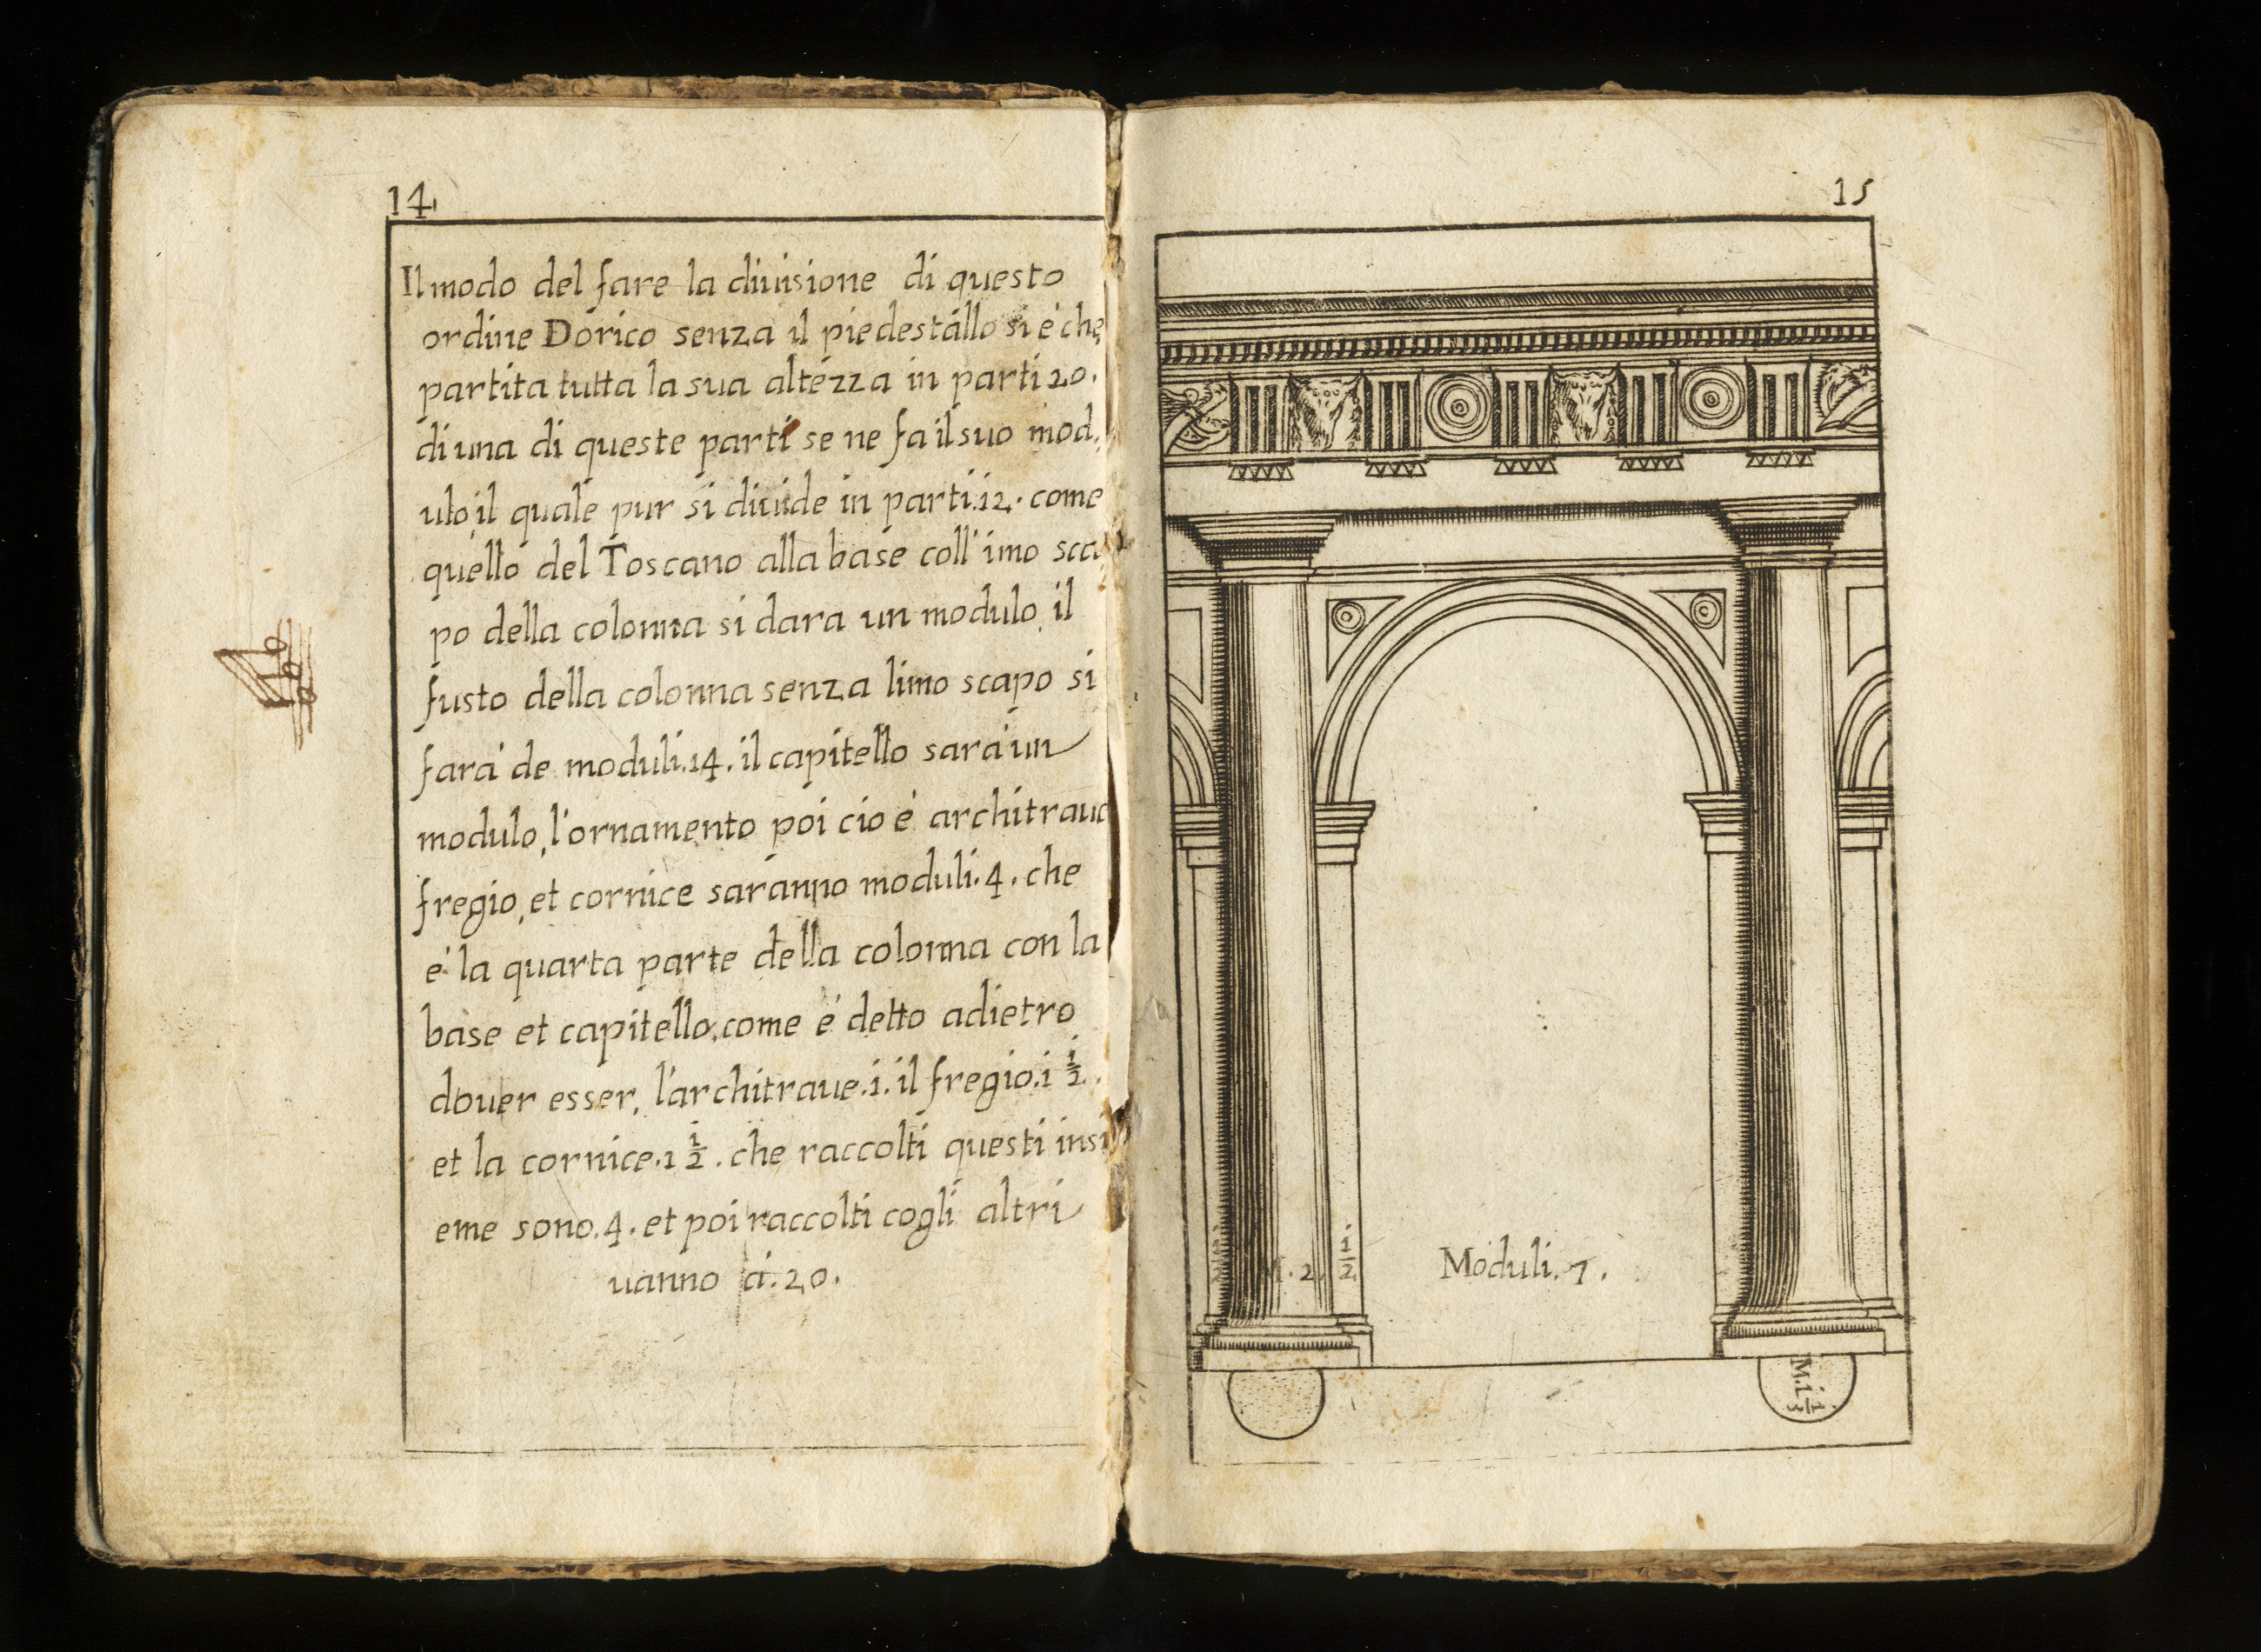 14
Il modo del fare la diuisione di questo
ordine Dorico senza il piedestallo si é che
partita tutta la sua altezza in parti 20.
di una di queste parti se ne fa il suo mod,
ulo, il quale pur si diuide in parti .12. come
quello del Toscano alla base coll'imo sca,
po della colonna si dara un modulo, il
fusto della colonna senza limo scapo si
fará de moduli .14. il capitello sará un
modulo, l'ornamento poi cio é architraue
fregio, et cornice saranno moduli .4. che
é la quarta parte della colonna con la
base et capitello, come é detto adietro
douer esser, l'architraue .1. il fregio .1 1/2.
et la cornice .1 1/2. che raccolti questi insi
eme sono .4. et poi raccolti cogli altri
uanno á .20.
15
1/2 M. 2. 1/2 Moduli. 7.
M. 1 1/3